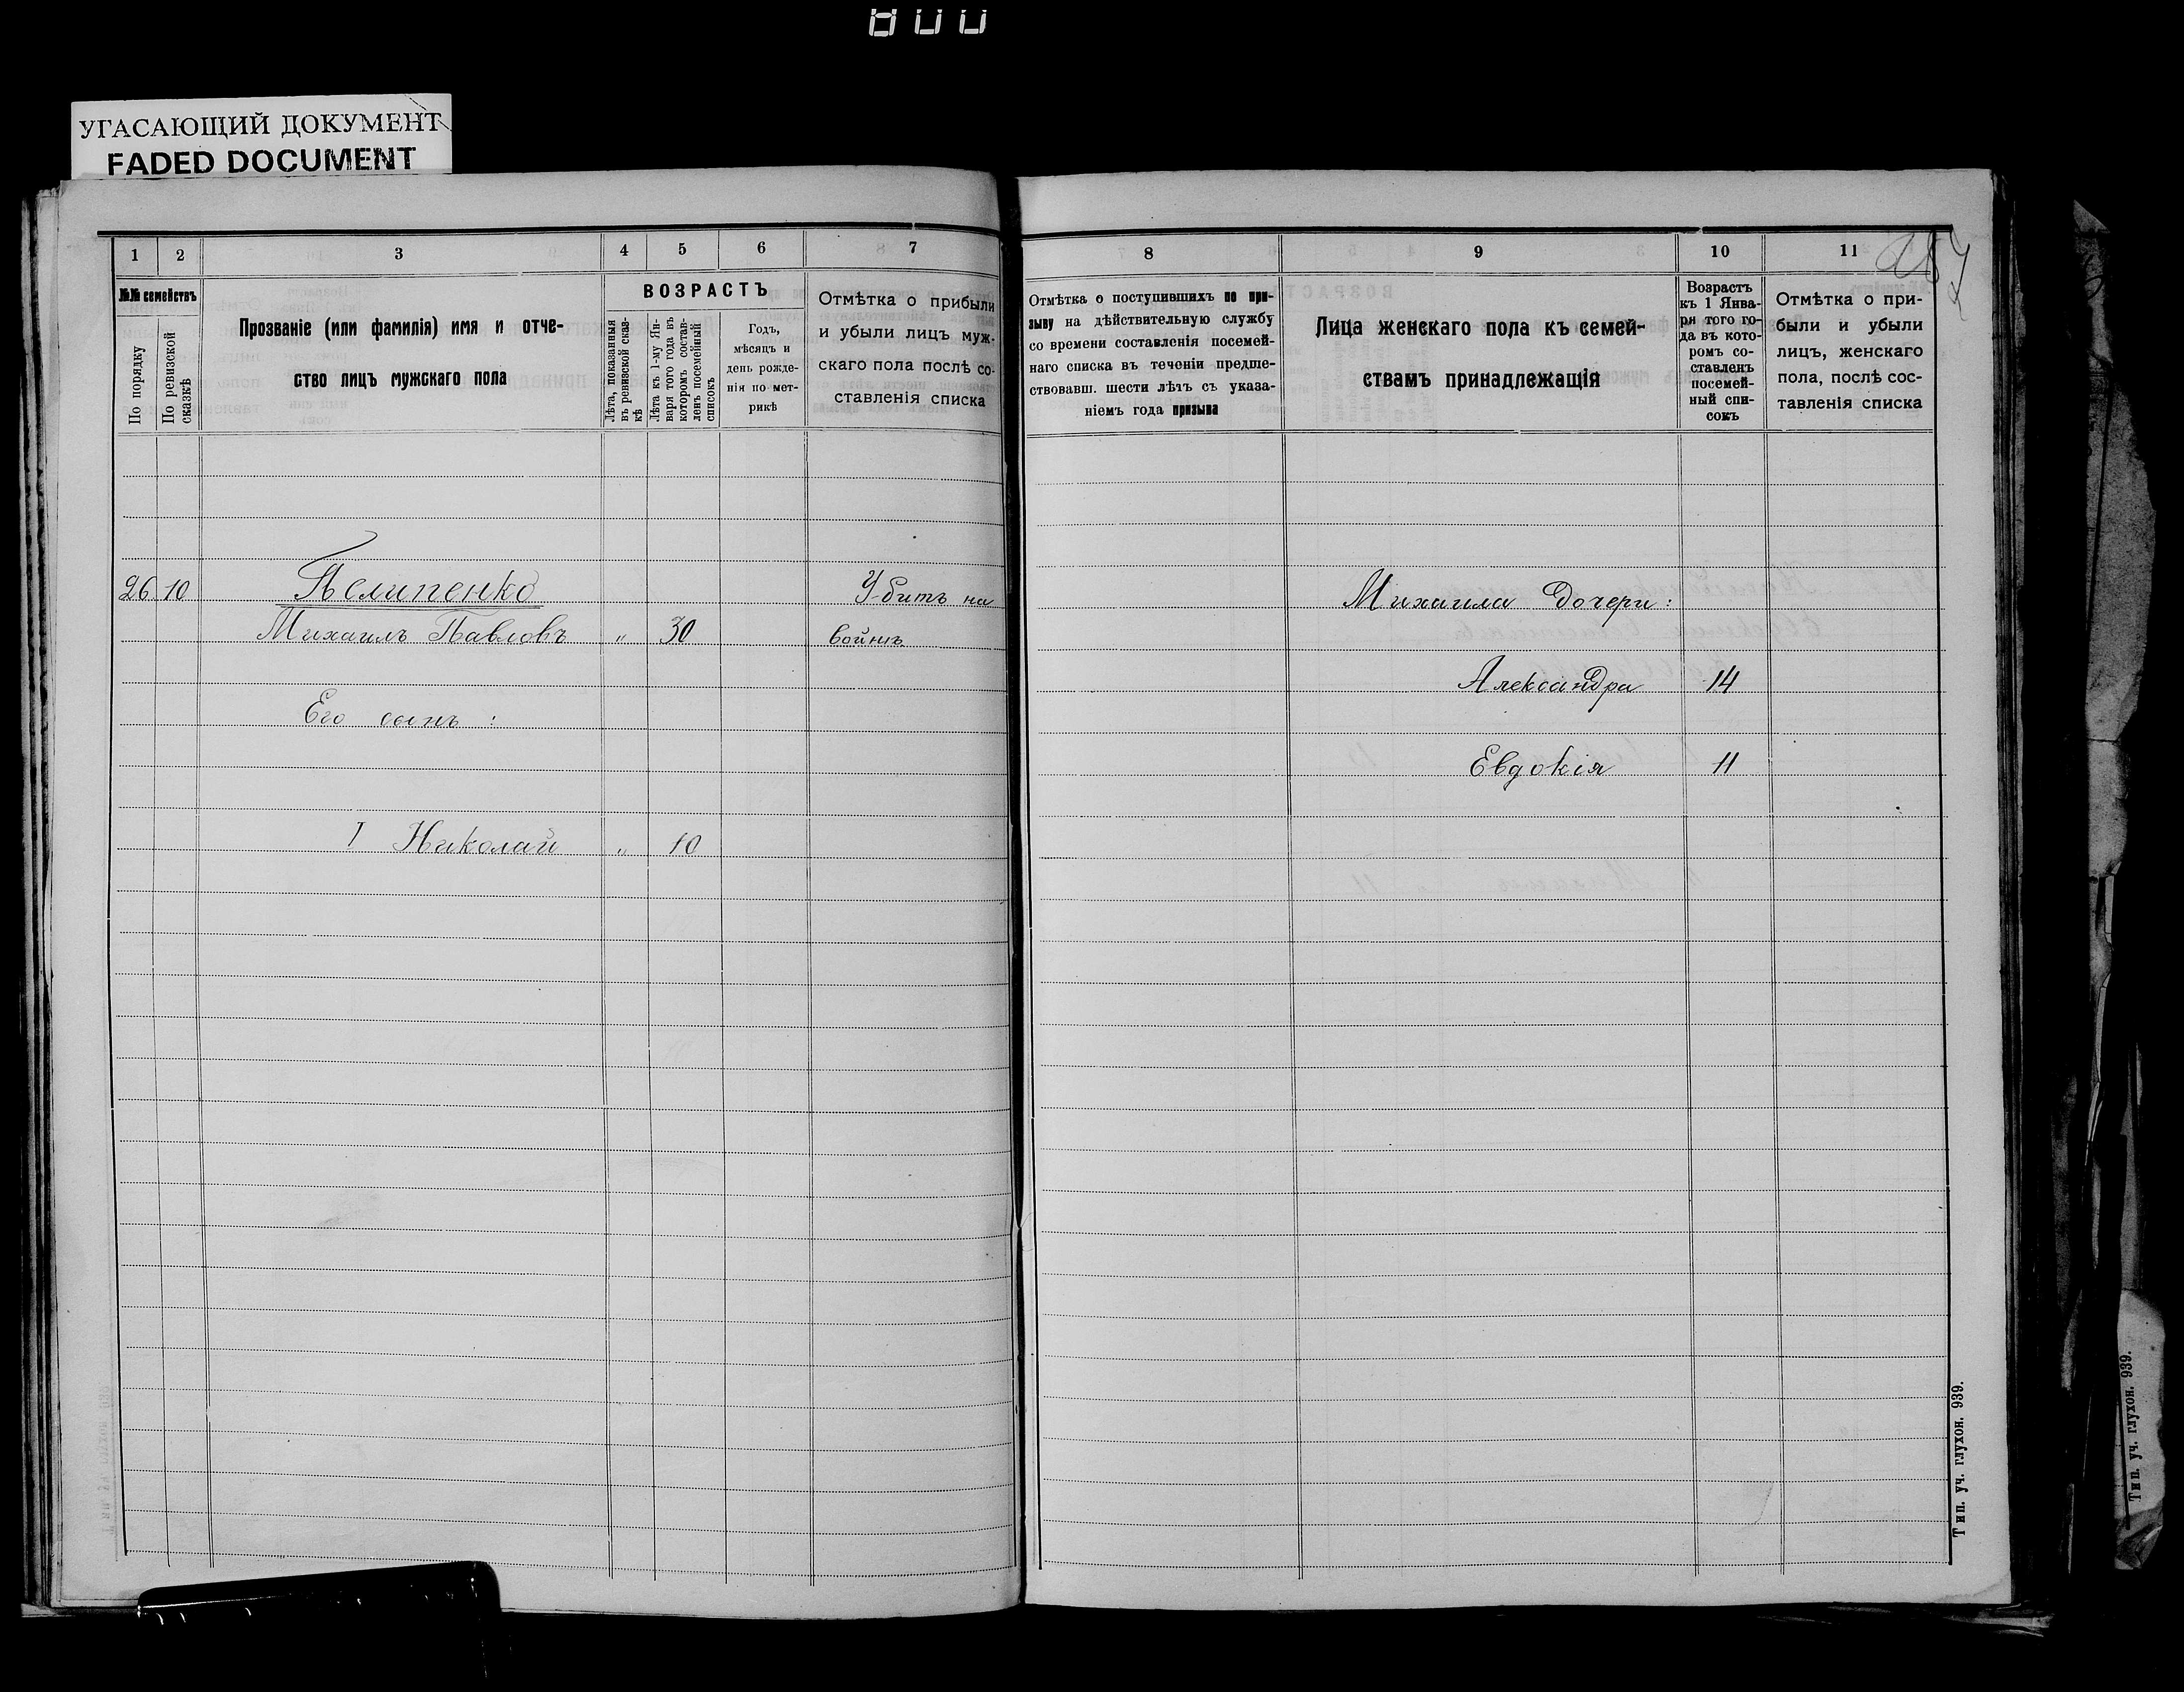 800
УГАСАЮЩИЙ ДОКУМЕНТ
FADED DOCUMENT
1 2 3 4 5 6 7
№№ семействъ
По порядку
По ревизской сказкѣ
Прозваніе (или фамилія) имя и отче-
ство лицъ мужскаго пола
ВОЗРАСТЪ
Лѣта, показанныя
въ ревизской сказ-
кѣ
Лѣта къ 1-му Ян-
варя того года въ
которомъ состав-
ленъ посемейный
списокъ
Годъ,
мѣсяцъ и
день рожде-
нія по мет-
рикѣ
Отмѣтка о прибыли
и убыли лицъ муж-
скаго пола послѣ со-
ставленія списка
26 10 Пелипенко Убитъ на
Михаилъ Павловъ " 30 войнѣ
Его сынъ :
1 Николай " 10
8 9 10 11
Отмѣтка о поступившихъ по при-
зыву на дѣйствительную службу
со времени составленія посемей-
наго списка въ теченіи предше-
ствовавш. шести лѣтъ съ указа-
ніемъ года призыва
Лица женскаго пола къ семей-
ствамъ принадлежащія
Возрастъ
къ 1 Янва-
ря того го-
да въ кото-
ромъ со-
ставленъ
посемей-
ный спи-
сокъ
Отмѣтка о при-
были и убыли
лицъ, женскаго
пола, послѣ сос-
тавленія списка
Михаила дочери:
Александра 14
Евдокія 11
Тип. уч. глухон. 939.
Тип. уч. глухон. 939.